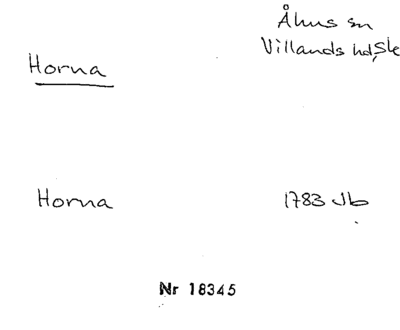 Åhus sn
Villands hd, Sk
Horna
Horna 1783 Jb
Nr 18345